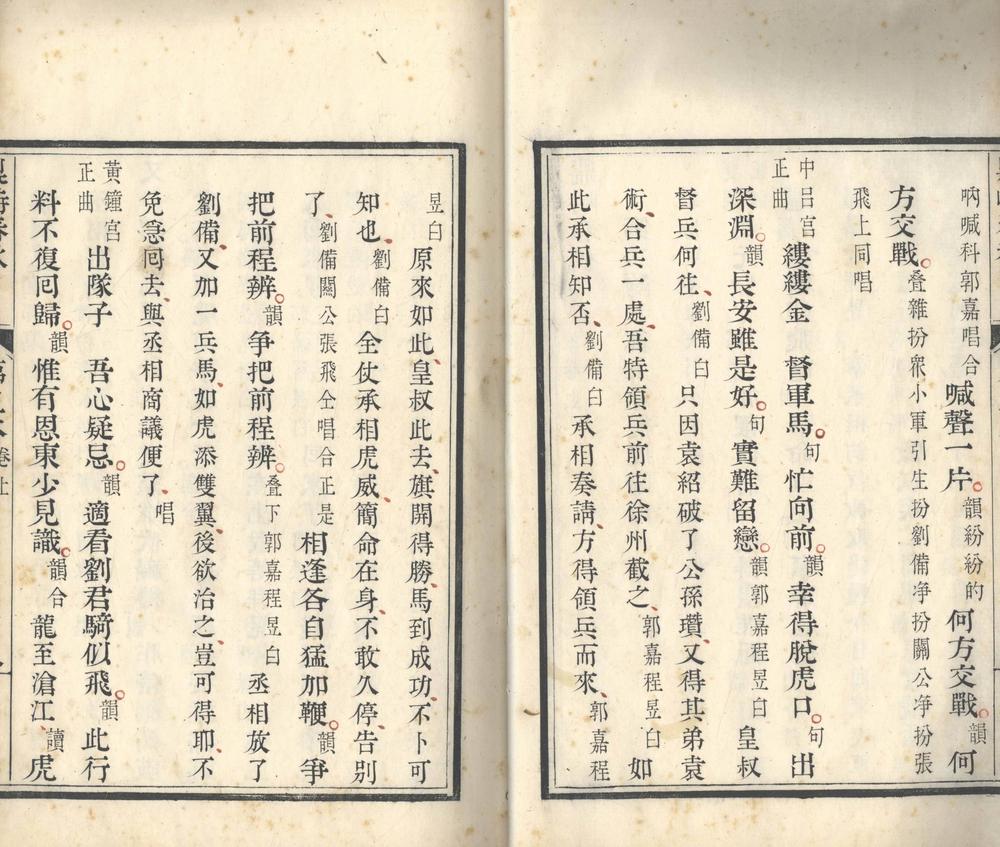 吶喊科郭嘉唱合喊聲一片韻紛紛的何方交戰韻何
方交戰叠雜扮衆小軍引生扮劉備凈扮關公凈扮張
飛上同唱
中呂宮
正曲
縷縷金 督軍馬句忙向前韻幸得脫虎口句出
深淵韻長安雖是好句實難留戀韻郭嘉程昱白皇叔
督兵何往劉備白只因袁紹破了公孫瓚又得其弟袁
術合兵一處吾特領兵前往徐州截之郭嘉程昱白如
此承相知否劉備白承相奏請方得領兵而來郭嘉程
昱白原來如此皇叔此去旗開得勝馬到成功不卜可
知也劉備白全仗承相虎威簡命在身不敢久停告別
了劉備關公張飛仝唱合正是相逢各自猛加鞭韻爭
把前程辨韻爭把前程辨叠下郭嘉程昱白丞相放了
劉備又加一兵馬如虎添雙翼後欲治之豈可得耶不
免急回去與丞相商議便了唱
黃鐘宮
正曲
出隊子 吾心疑忌韻適看劉君騎似飛韻此行
料不復回歸韻惟有恩東少見識韻合龍至滄江讀虎